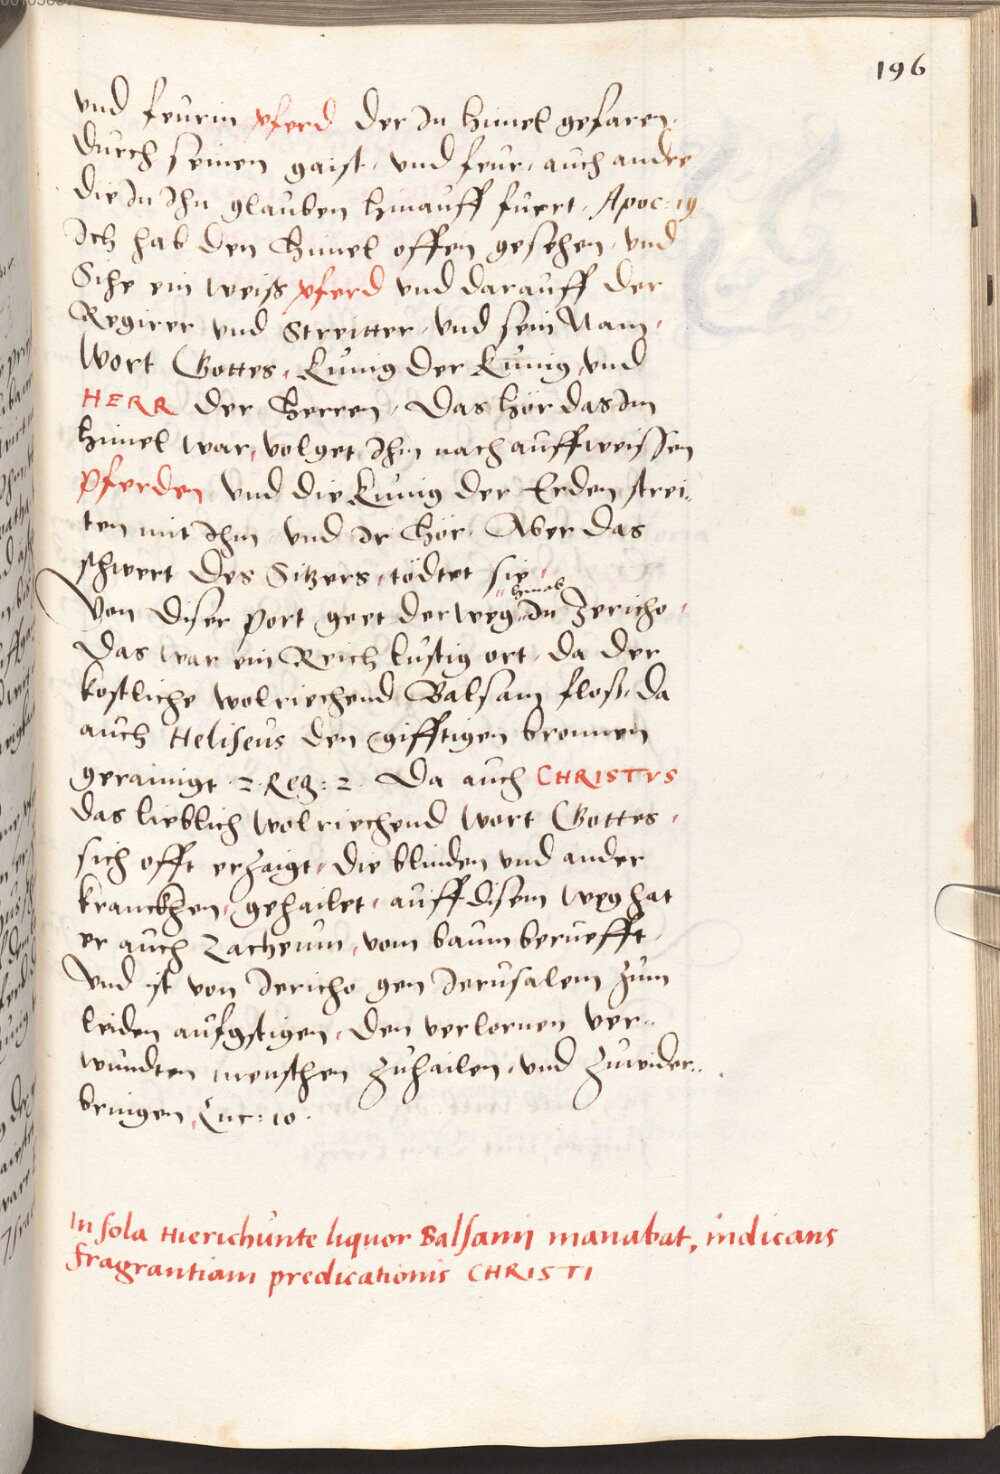 196
vnd feurin pferd der In himel gefaren.
durch seinen gaist, vnd feur, auch andre
die In Ihn glauben hinauff fuert. Apoc: 19
Ich hab den Himel offen gesehen, vnd
Sihe ein weiss pferd vnd darauff der
Regirer vnd Streitter, vnd sein Nam,
Wort Gottes, Künig der Künig, vnd
HERR der Herren, Das hör das Im
himel war, volget Ihm nach auff weissen
pferden vnd die Künig der Erden strei„
ten mit Ihm, vnd Ir hör. Aber das
schwert des Sitzers, tödtet sie.
Von diser port geet der weg „hinab In Jericho,
Das war ein Reich lustig ort, da der
kostliche wolriechend Balsam floss, da
auch Heliseus den gifftigen bronnen
gerainigt 2. Reg: 2. Da auch CHRISTVS
das lieblich wolriechend wort Gottes,
sich offt erzaigt, die blinden vnd ander
kranckhen, gehailet, auff disem weg hat
er auch Zacheum, vom baum berüefft,
Vnd ist von Jericho gen Jerusalem zum
leiden aufgstigen, den verlornen ver„
wundten menschen zuhailen, vnd zuwider„
bringen, Luc: 10.
In sola Hierichunte liquor Balsami manabat, indicans
fragrantiam predicationis CHRISTI